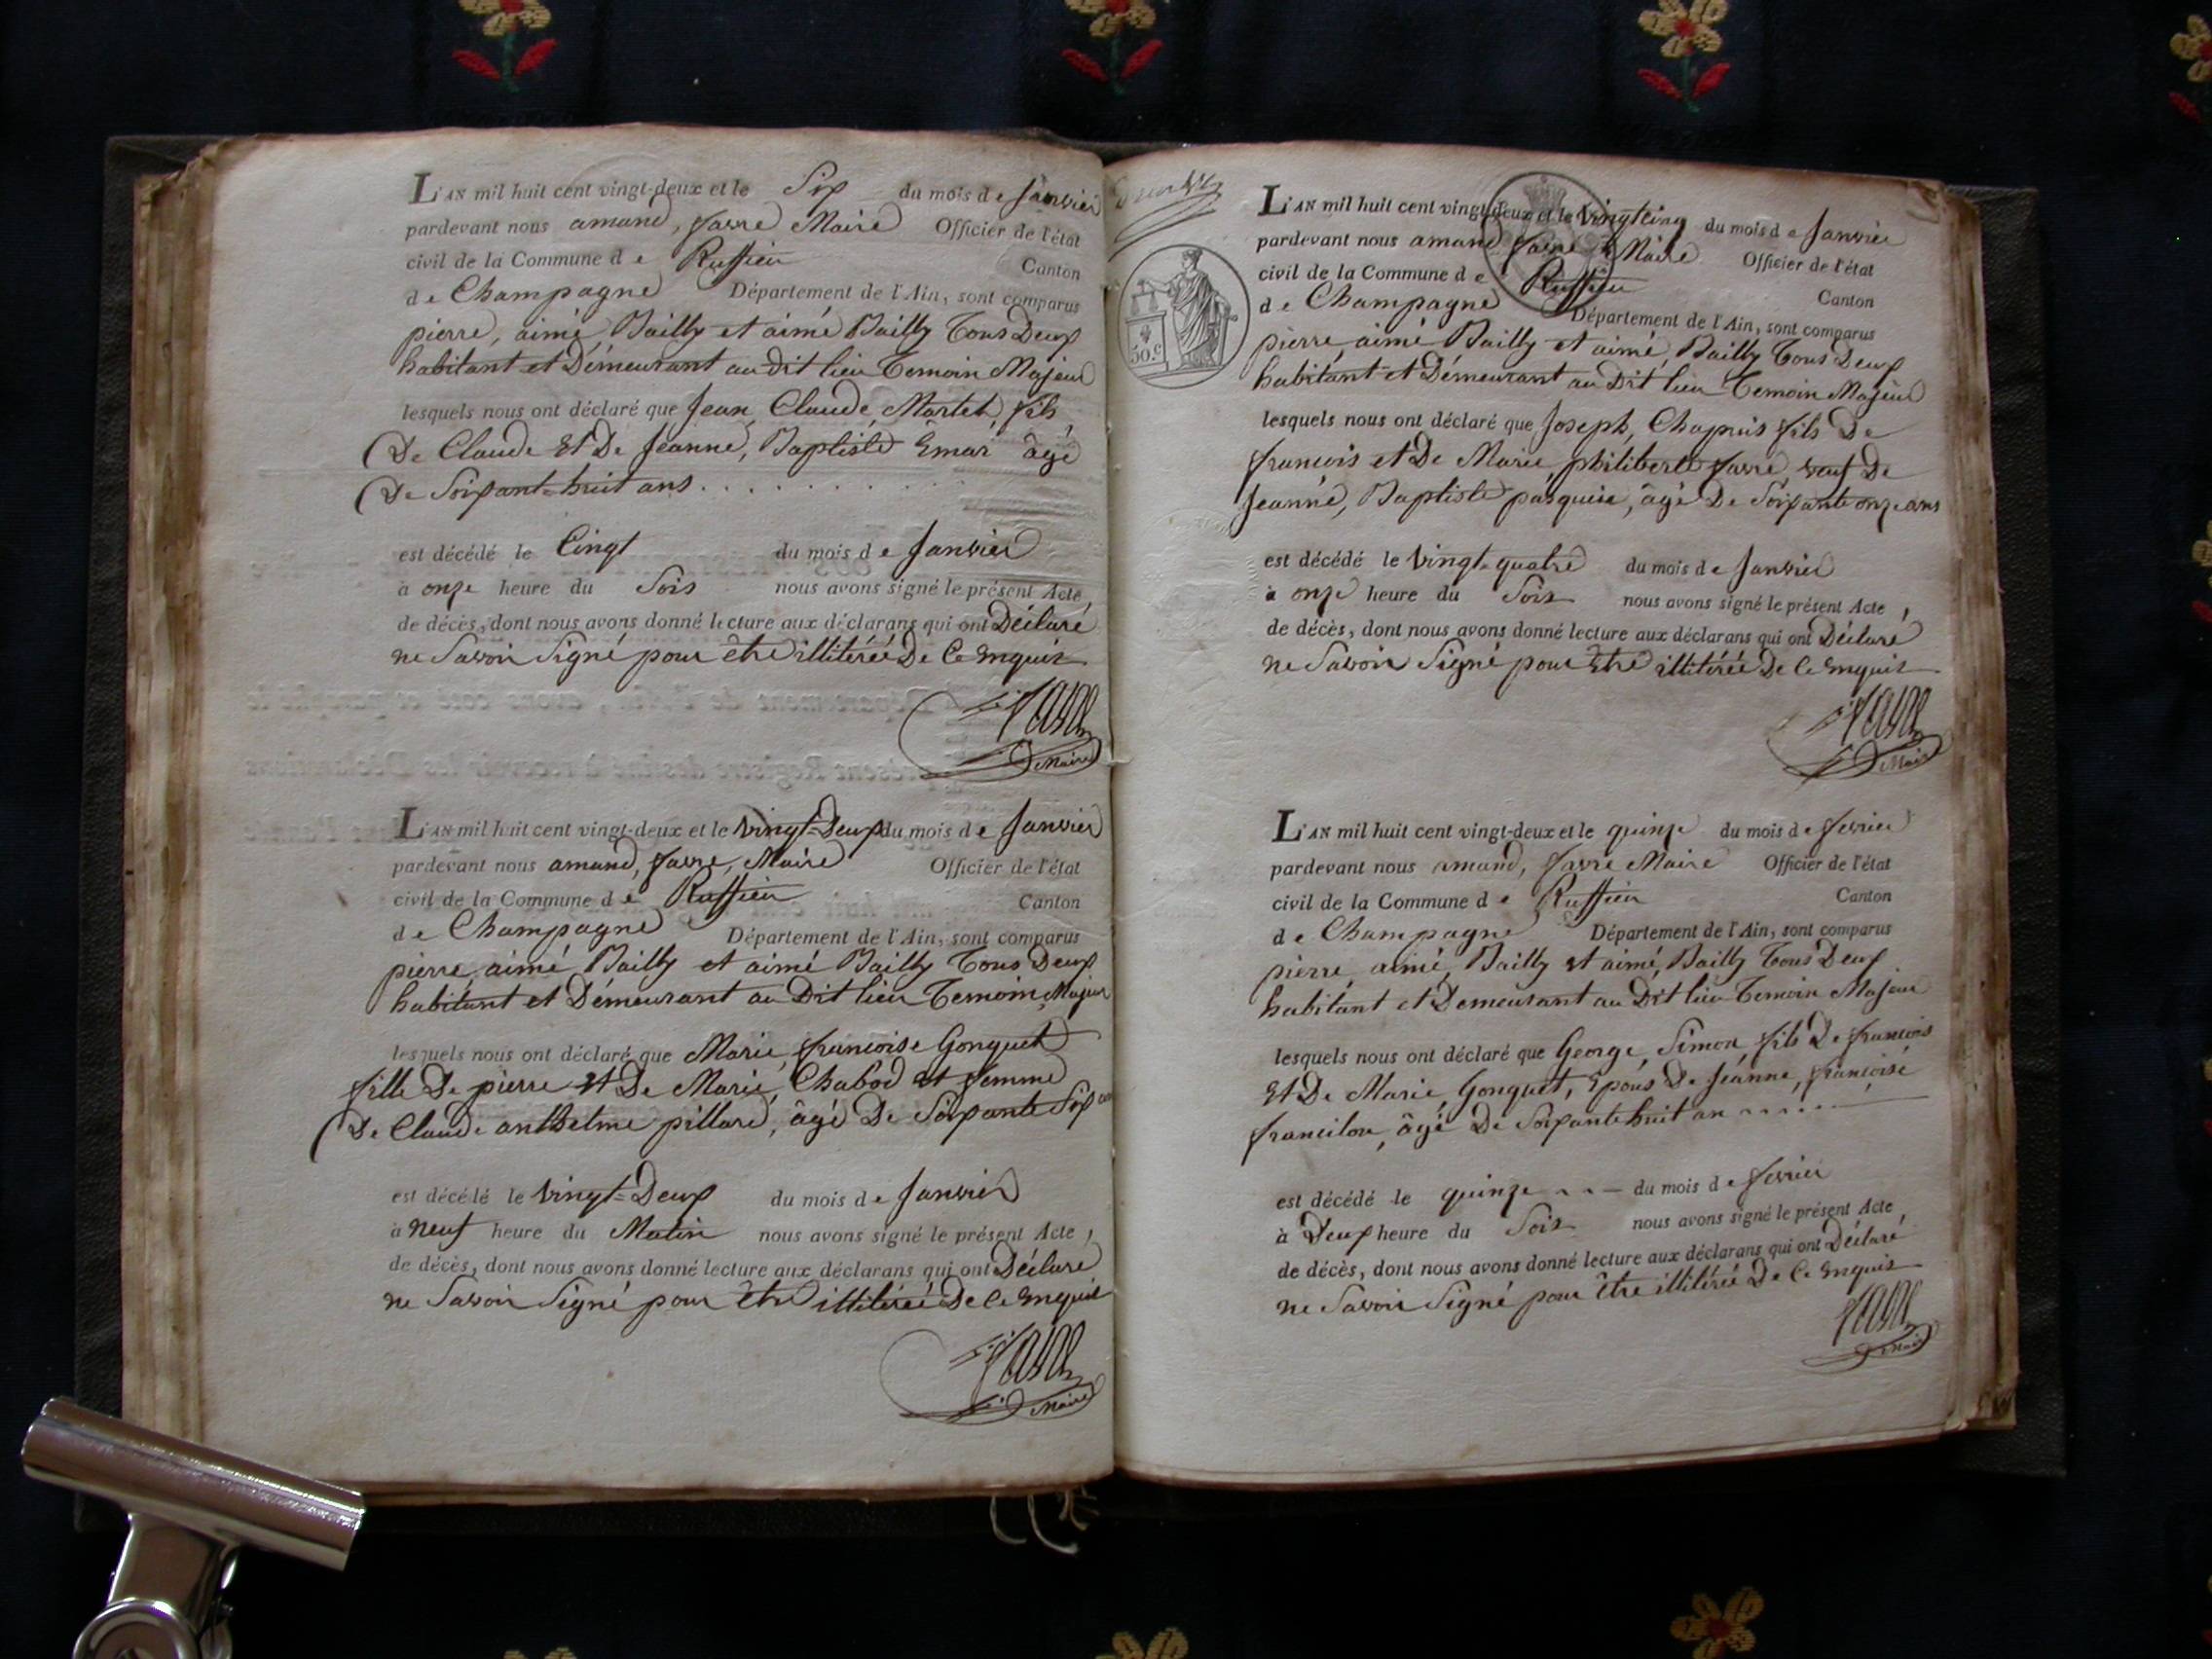 L'AN mil huit cent vingt-deux et le Six du mois de Janvier
pardevant nous amand, favre Maire Officier de l'état
civil de la Commune de Ruffieu Canton
de Champagne Département de l'Ain, sont comparus
pierre, aimé, Bailly et aimé Bailly Tous Deux
habitant et Démeurant au dit lieu Temoin Majeur
lesquels nous ont déclaré que Jean, Claude, Martel, fils
De Claude Et De Jeanne, Baptiste Emar âgé
De Soixant-huit ans . . . . . . . . .
est décédé le Cinqt du mois de Janvier
à onze heure du Soir nous avons signé le présent Acte,
de décès, dont nous avons donné lecture aux déclarans qui ont Déclaré
ne Savoir Signé pour être illitérée De Ce Enquis
favre
Maire
L'AN mil huit cent vingt-deux et le vingt=Deux du mois de Janvier
pardevant nous amand, favre, Maire Officier de l'état
civil de la Commune de Ruffieu Canton
de Champagne Département de l'Ain, sont comparus
pierre, aimé, Bailly et aimé Bailly Tous Deux
habitant et Démeurant au Dit lieu Temoin, Majeur
lesquels nous ont déclaré que Marie, francoise Gonguet
fille De pierre Et De Marie, Chabod Et femme
De Claude anthelme pillard, âgé De Soixante Six an
est décédé le vingt=Deux du mois de Janvier
à neuf heure du Matin nous avons signé le présent Acte,
de décès, dont nous avons donné lecture aux déclarans qui ont Déclaré
ne Savoir Signé pour être illitérée De Ce Enquis
favre
Maire
50.c
L'AN mil huit cent vingt-deux et le vingtcinq du mois de Janvier
pardevant nous amand favre Maire Officier de l'état
civil de la Commune de Ruffieu Canton
de Champagne Département de l'Ain, sont comparus
pierre aimé Bailly et aimé, Bailly Tous Deux
habitant et Démeurant au Dit lieu Temoin Majeur
lesquels nous ont déclaré que Joseph, Chapuis fils De
francois et De Marie, philiberte favre veuf De
Jeanne, Baptiste pasquise, âgé De Soixante onze ans
est décédé le vingt-quatre du mois de Janvier
à onze heure du Soir nous avons signé le présent Acte,
de décès, dont nous avons donné lecture aux déclarans qui ont Déclaré
ne Savoir Signé pour être illitérée De Ce Enquis
favre
Maire
L'AN mil huit cent vingt-deux et le quinze du mois de fevrier
pardevant nous amand, favre Maire Officier de l'état
civil de la Commune de Ruffieu Canton
de Champagne Département de l'Ain, sont comparus
pierre, aimé, Bailly Et aimé, Bailly Tous Deux
habitant et Demeurant au Dit lieu Temoin Majeur
lesquels nous ont déclaré que George, Simon, fils De francois
Et De Marie, Gonguet, Epous De Jeanne, francoise
francilon, âgé De Soixante huit an
est décédé le quinze du mois de fevrier
à Deux heure du Soir nous avons signé le présent Acte,
de décès, dont nous avons donné lecture aux déclarans qui ont Déclaré
ne Savoir Signé pour être illitérée De Ce Enquis
favre
Maire